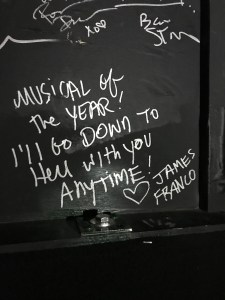 MUSICAL of
the YEAR!
I'll GO DOWN TO
Hell with you
ANYTIME!
JAMES
FRANCO